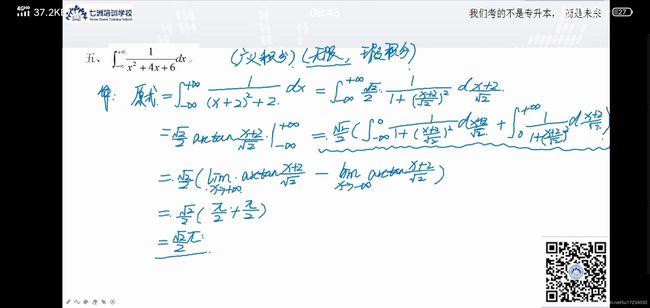 4G 37.2K 08:43 27
七洲培训学校
我们考的不是专升本, 而是未来
五、∫_{-∞}^{+∞} 1/(x²+4x+6) dx。 (广义积分) (无限, 积分)
解: 原式 = ∫_{-∞}^{+∞} 1/((x+2)²+2) dx = ∫_{-∞}^{+∞} √2/2 · 1/(1+((x+2)/√2)²) d (x+2)/√2
= √2/2 arctan (x+2)/√2 |_{-∞}^{+∞} = √2/2 (∫_{-∞}^{0} 1/(1+((x+2)/√2)²) d (x+2)/√2 + ∫_{0}^{+∞} 1/(1+((x+2)/√2)²) d (x+2)/√2)
= √2/2 (lim_{x→+∞} arctan (x+2)/√2 − lim_{x→-∞} arctan (x+2)/√2)
= √2/2 (π/2 + π/2)
= √2/2 π